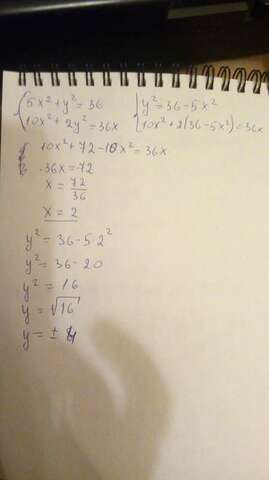 5x²+y²=36 y²=36-5x²
10x²+2y²=36x 10x²+2(36-5x²)=36x
10x²+72-10x²=36x
-36x=-72
x=72/36
x=2
y²=36-5·2²
y²=36-20
y²=16
y=√16
y=±4